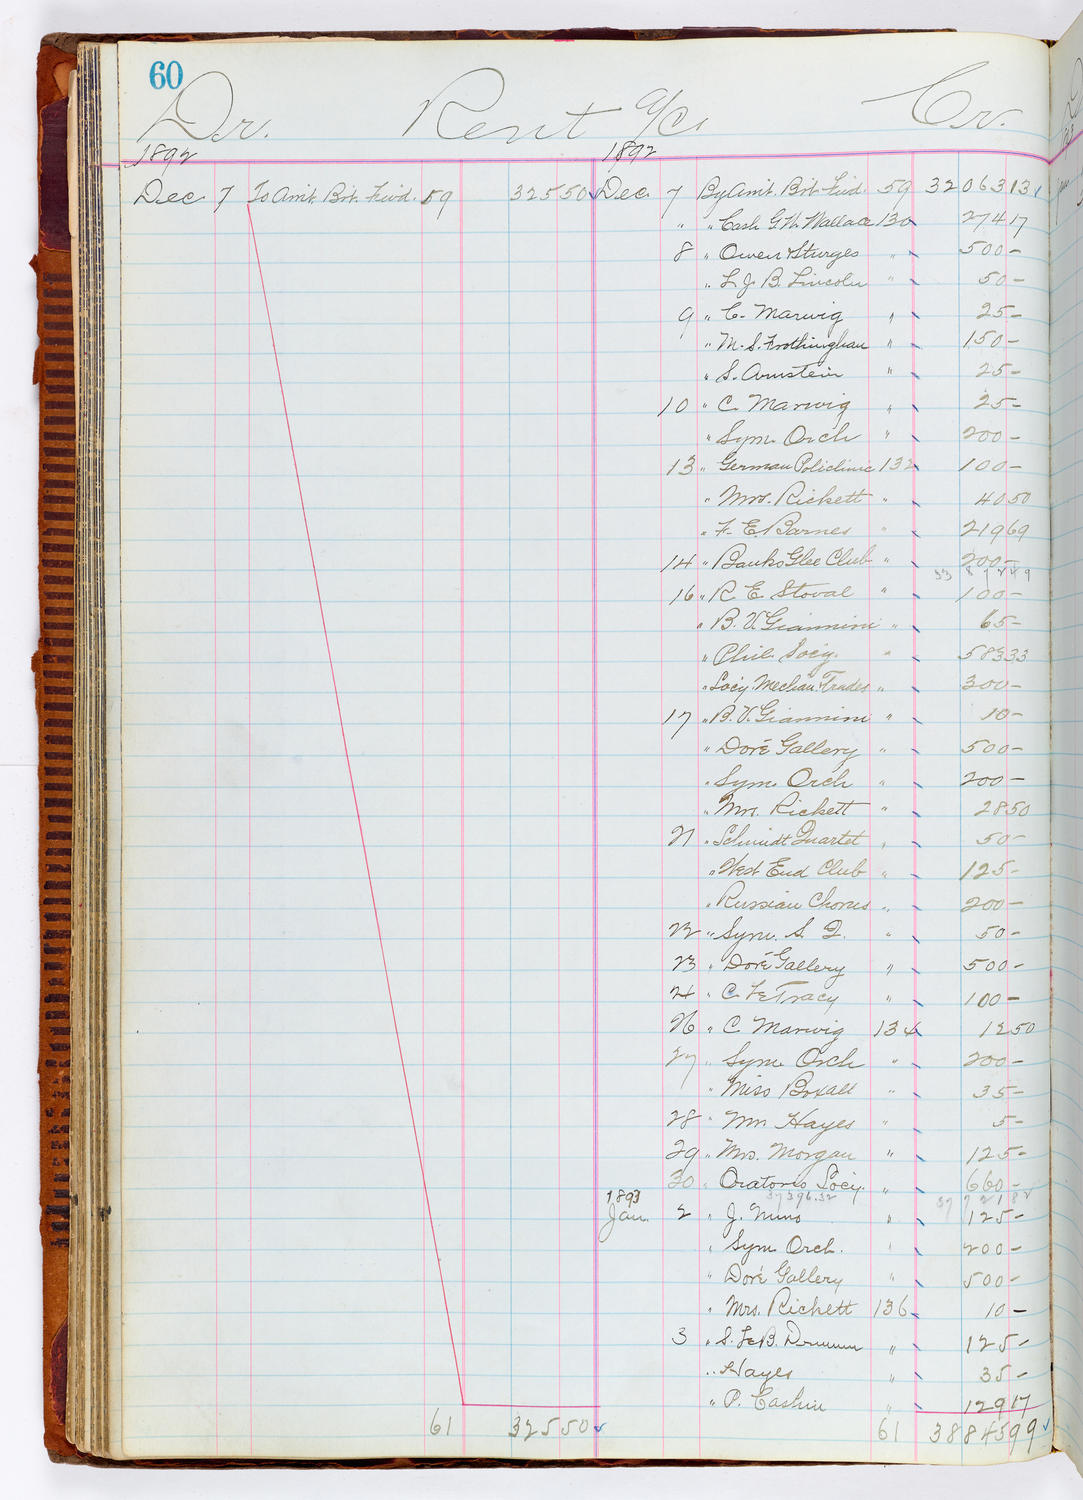 60
Dr. Rent a/c Cr.
1892 1892
Dec 7 To Amt. Brt. Fwd. 59 325 50 Dec. 7 By Amt. Brt. Fwd. 59 32063 13
" " Cash G. W. Wallace 130 274 17
8 " Owen Sturges " 500 -
" L. J. B. Lincoln " 50 -
9 " C. Marwig " 25 -
" M. S. Frothingham " 150 -
" S. Arnstein " 25 -
10 " C. Marwig " 25 -
" Sym. Orch " 200 -
13 " German Policlinic 132 100 -
" Mrs. Rickett " 40 50
" F. E. Barnes " 219 69
14 " Banks Glee Club " 200 -
16 " R. E. Stoval " 100 -
" B. V. Giannini " 65 -
" Phil. Socy. " 583 33
" Socy. Mechan. Trades " 300 -
17 " B. V. Giannini " 10 -
" Doré Gallery " 500 -
" Sym. Orch " 200 -
" Mrs. Rickett " 28 50
21 " Schmidt Quartet " 50 -
" West End Club " 125 -
" Russian Chorus " 200 -
22 " Sym. S. Q. " 50 -
23 " Doré Gallery " 500 -
24 " C. Le Tracy " 100 -
26 " C Marwig 134 12 50
27 " Sym. Orch " 200 -
" Miss Boxall " 35 -
28 " Mr. Hayes " 5 -
29 " Mrs. Morgan " 125 -
30 " Oratorio Socy. " 660 -
1893 37396.32 37 721 82
Jan. 2 " J. " 125 -
" Sym. Orch. " 200 -
" Doré Gallery " 500 -
" Mrs. Rickett 136 10 -
3 " S. Le B. Drumm " 125 -
" Hayes " 35 -
" P. Cashin " 129 17
61 325 50 61 38845 99